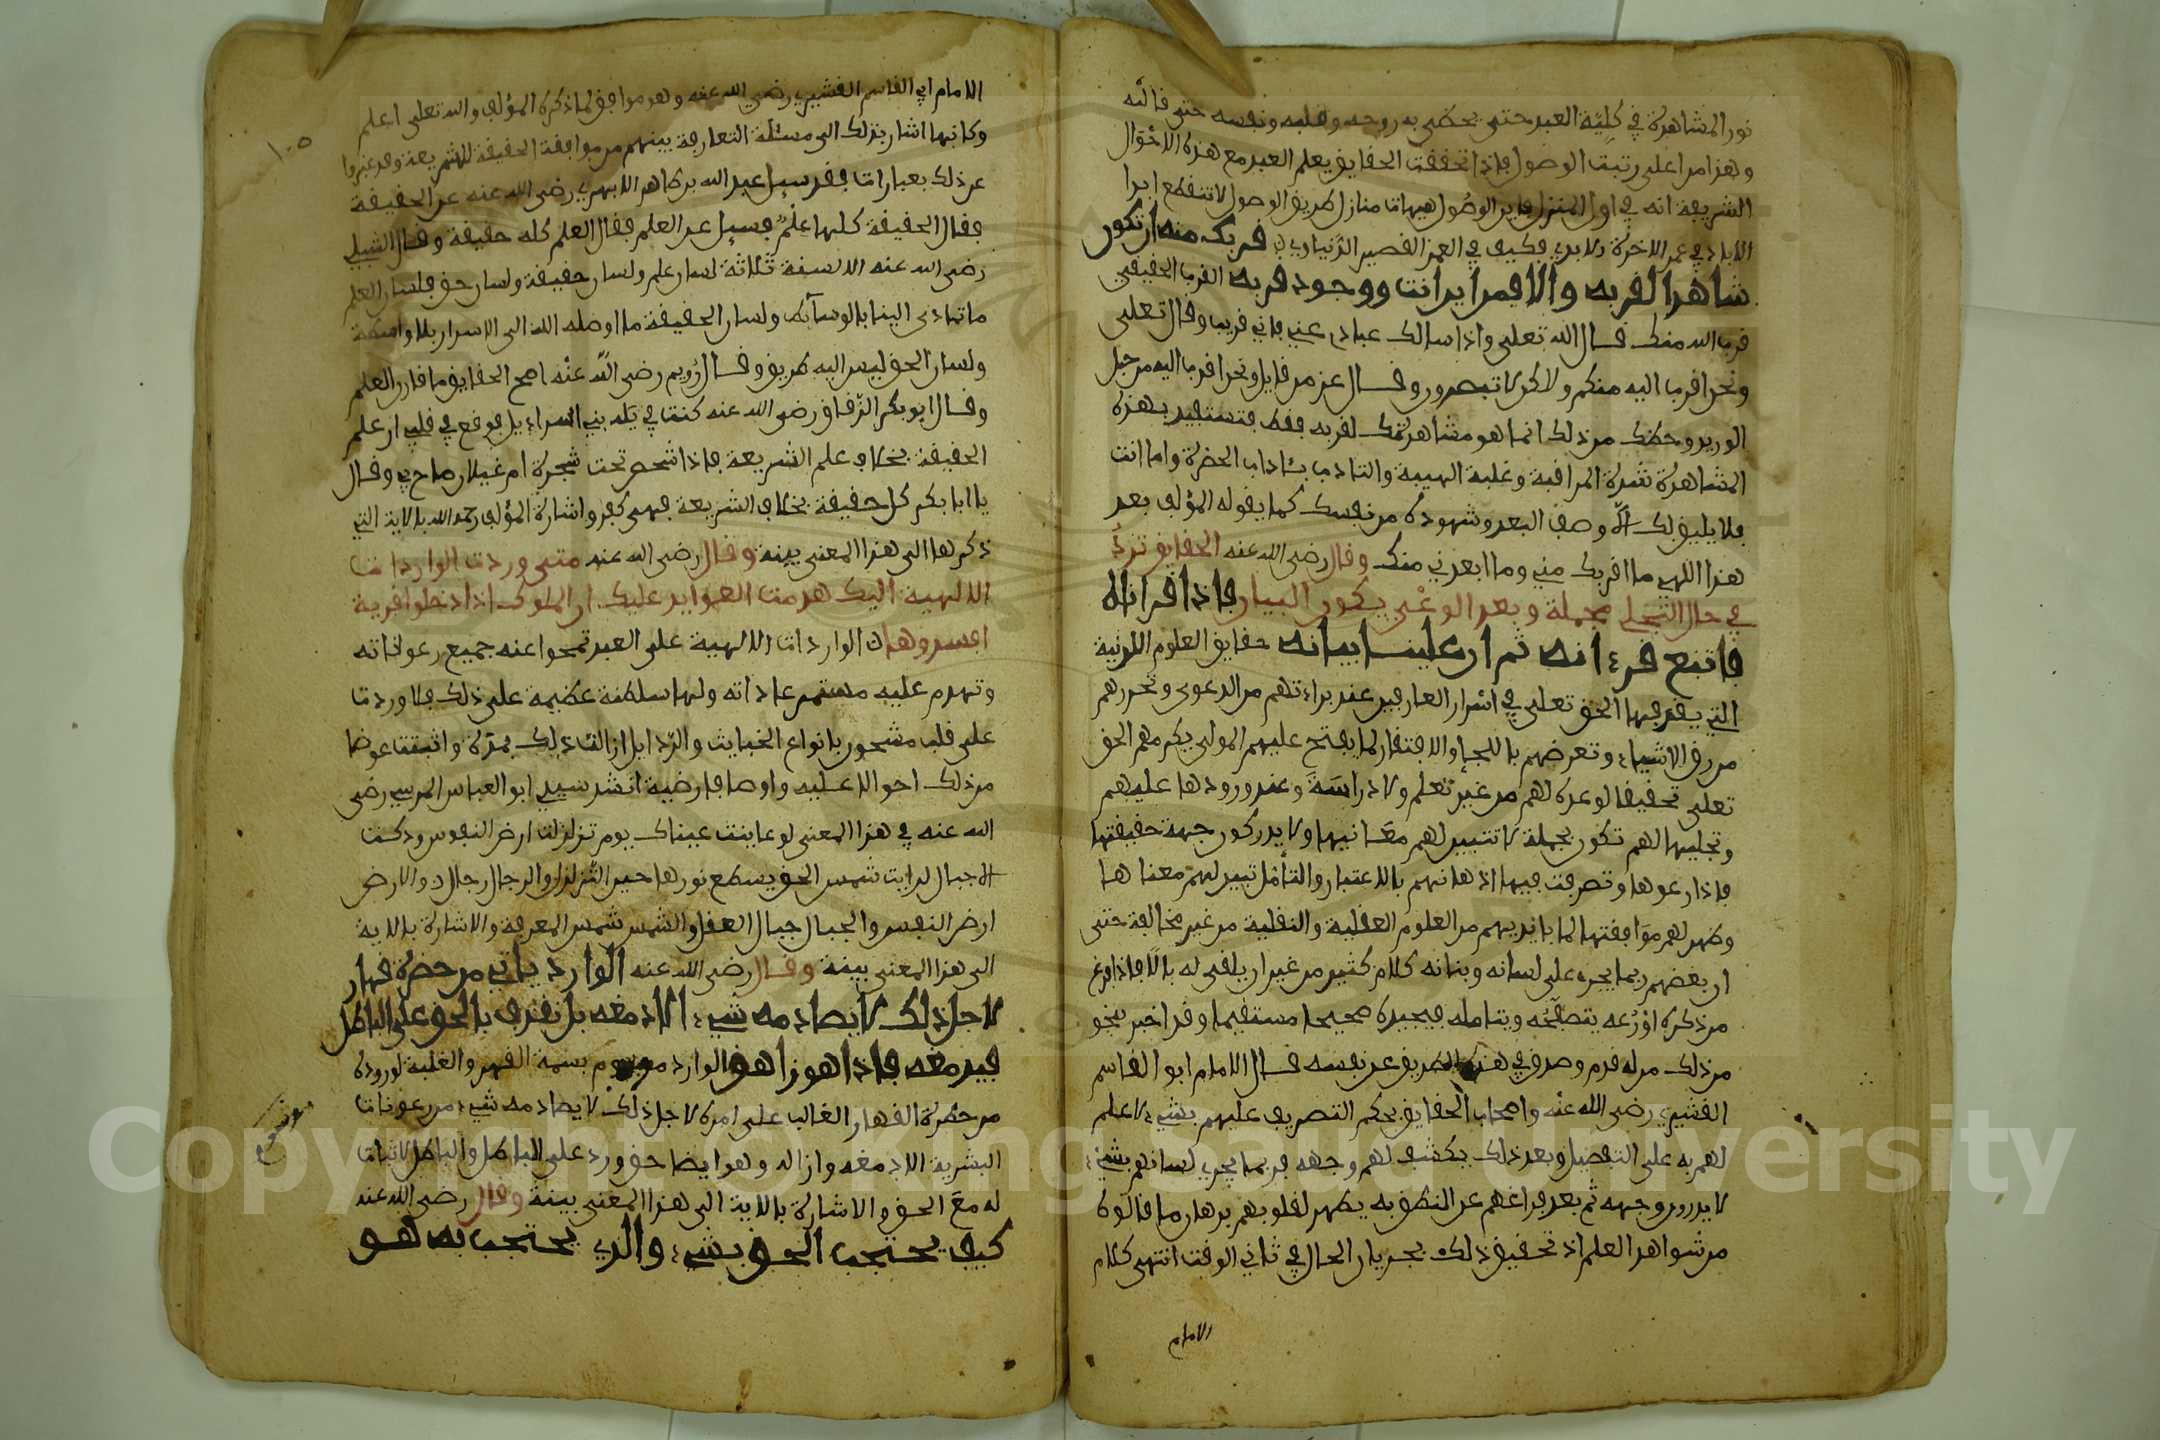 نور المشاهدة في كلية العبد حتى يحظى به روحه وقلبه ونفسه حتى قالبه
وهذا من اعلى رتب الوصول فاذا تحققت الحقايق يعلم العبد مع هذه الاحوال
الشريفة انه في اول المنزل فاين الوصول هيهات منازل طريق الوصول لا تنقطع ابدا
الاباد في عمر الاخرة الابدي فكيف في العمر القصير الدنياوي قربك منه ان تكون
شاهدا لقربه والا فمن اين انت ووجود قربه القرب الحقيقي
قرب الله منك قال الله تعلى واذا سالك عبادي عني فاني قريب وقال تعلى
ونحن اقرب اليه منكم ولاكن لا تبصرون وقال عز من قايل ونحن اقرب اليه من حبل
الوريد وحظك من ذلك انما هو مشاهدتك لقربه فقط فتستفيد بهذه
المشاهدة شدة المراقبة وغلبة الهيبة والتادب بئاداب الحضرة واما انت
فلا يليق بك الا وصف البعد وشهوده من نفسك كما يقوله المؤلف بعد
هذا اللهي ما اقربك مني وما ابعدني منك وقال رضي الله عنه الحقايق ترد
في حال التجلي مجملة وبعد الوعي يكون البيان فاذا قراناه
فاتبع قرءانه ثم ان علينا بيانه حقايق العلوم اللدنية
التي يقذفها الحق تعلى في اسرار العارفين عند براءتهم من الدعوى وتحررهم
من رق الاشياء وتعرضهم باللجإ والافتقار لما يفتح عليهم المولى يكرمهم الحق
تعلى تحقيقا لوعده لهم من غير تعلم ولا دراسة وعند ورودها عليهم
وتجليها لهم تكون مجملة لا تتبين لهم معانيها ولا يدركون جهة حقيقتها
فاذا وعوها وتصرفت فيها اذهانهم بالاعتبار والتأمل تبين لهم معناها
وظهر لهم موافقتها لما بايديهم من العلوم العقلية والنقلية من غير مخالفة حتى
ان بعضهم ربما يجري على لسانه وبنانه كلام كثير من غير ان يلقي له بالا فاذا فرغ
من ذكره او رسمه يتصفحه ويتامله فيجده صحيحا مستقيما وقد اخبر بنحو
من ذلك من له قدم وصدق في هذه الطريق عن نفسه قال الامام ابو القاسم
القشيري رضي الله عنه واصحاب الحقايق يحكم التصريف عليهم بشيء لا علم
لهم به على التفصيل وبعد ذلك يكشف لهم وجهه فربما يجري لسانهم بشيء
لا يدرون وجهه ثم بعد فراغهم عن النطق به يظهر لقلوبهم برهان ما قالوه
من شواهد العلم اذ تحقيق ذلك بجريان الحال في ثاني الوقت انتهى كلام
الامام
١٠٥
الامام ابي القاسم القشيري رضي الله عنه وهو موافق لما ذكره المؤلف والله تعلى اعلم
وكانهما اشارا بذلك الى مسئلة التعارفة بينهم من موافقة الحقيقة للشريعة وقد عبروا
عن ذلك بعبارات فقد سيل عبد الله بن طاهر الابهري رضي الله عنه عن الحقيقة
فقال الحقيقة كلها علم فسيل عن العلم فقال العلم كله حقيقة وقال الشبلي
رضي الله عنه الالسنة ثلاثة لسان علم ولسان حقيقة ولسان حق فلسان العلم
ما تادى الينا بالوسائط ولسان الحقيقة ما اوصله الله الى الاسرار بلا واسطة
ولسان الحق ليس اليه طريق وقال رويم رضي الله عنه اصح الحقايق ما قارن العلم
وقال ابو بكر الزقاق رضي الله عنه كنت في تيه بني اسراءيل فوقع في قلبي ان علم
الحقيقة بخلاف علم الشريعة فاذا شخص تحت شجرة ام غيلان صاح بي وقال
يا ابا بكر كل حقيقة بخلاف الشريعة فهي كفر واشارة المؤلف رحمه الله بالاية التي
ذكرها الى هذا المعنى بينة وقال رضي الله عنه متى وردت الواردات
الالهية اليك هدمت العوايد عليك ان الملوك اذا دخلوا قرية
افسدوها الواردات الالهية على العبد تمحوا عنه جميع رعوناته
وتهدم عليه مستمر عاداته ولها سلطنة عظيمة على ذلك فلا وردت
على قلب مشحون بانواع الخبايث والرذايل ازالت ذلك بمرة واثبتت عوضا
من ذلك احوالا علية واوصافا رضية انشد سيدي ابو العباس المرسي رضي
الله عنه في هذا المعنى لو عاينت عيناك يوم تزلزلت ارض النفوس ودكت
الاجبال لرايت شمس الحق يسطع نورها حين التزلزل والرجال رجال والارض
ارض النفس والجبال جبال العقل والشمس شمس المعرفة والاشارة بالاية
الى هذا المعنى بينة وقال رضي الله عنه الوارد ياتي من حضرة قهار
لاجل ذلك لا يصادمه شيء الا دمغه بل نقذف بالحق على الباطل
فيدمغه فاذا هو زاهق الوارد موسوم بسمة القهر والغلبة لوروده
من حضرة القهار الغالب على امره لاجل ذلك لا يصادمه شيء من رعونات
البشرية الا دمغه وازاله وهو ايضا حق ورد على الباطل والباطل لا ثبات
له مع الحق والاشارة بالاية الى هذا المعنى بينة وقال رضي الله عنه
كيف يحتجب الحق بشيء والذي يحتجب به هو
Copyright © King Saud University